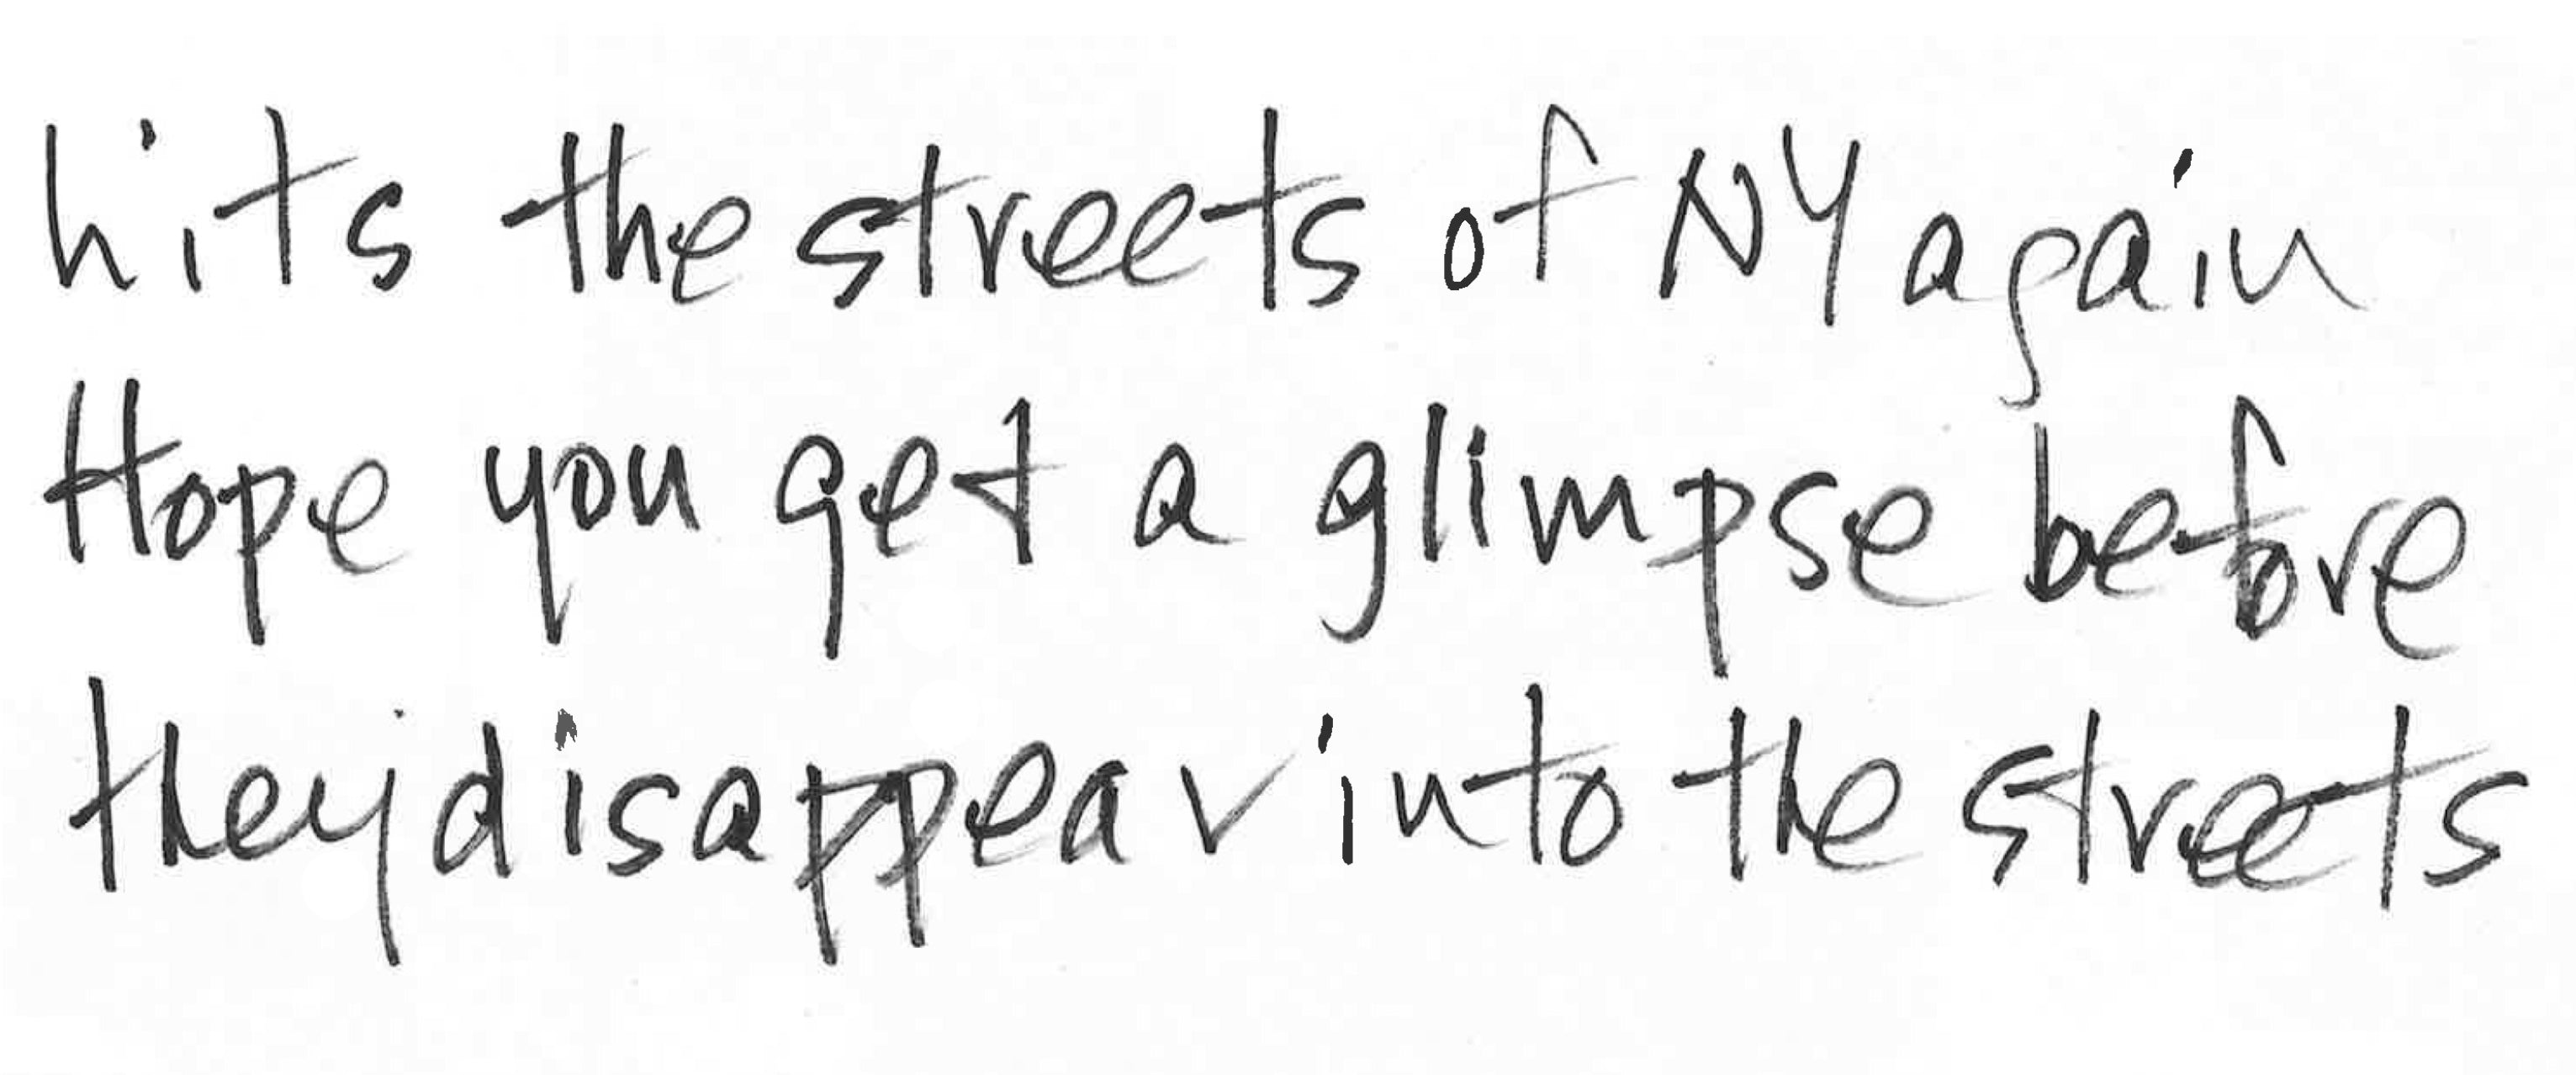 hits the streets of NY again
Hope you get a glimpse before
they disappear into the streets